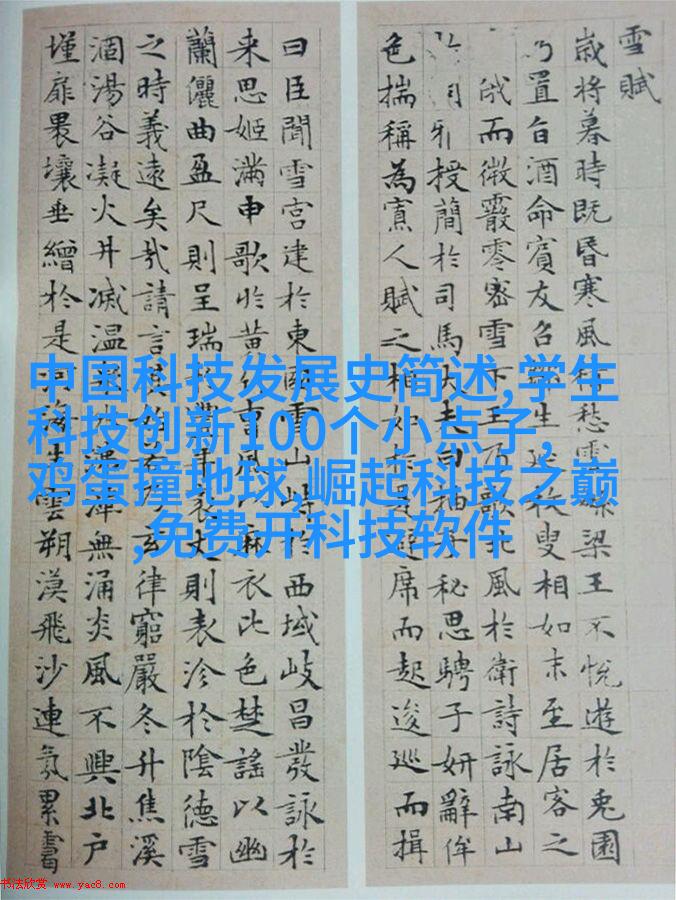 雪賦
歲將暮時既昏寒風積愁雲繁梁王不悅遊於兔園
乃置旨酒命賓友召鄒生延枚叟相如末至居客之
俄而微霰零密雪下王乃歌北風於衛詩詠南山
雅授簡於司馬大夫曰抽子秘思騁子妍辭侔
色揣稱為寡人賦之相如於是避席而起逡巡而揖
曰臣聞雪宮建於東國雪山峙於西域岐昌發詠於
来思姬滿申歌於黃竹曹風以麻衣比色楚謠以幽
蘭儷曲盈尺則呈瑞於豐年袤丈則表沴於陰德雪
之時義遠矣哉請言其始若乃玄律窮嚴冬升焦溪
涸湯谷凝火井滅温泉冰沸潭無涌炎風不興北户
墐扉壤垂繒於是河海生雲朔漠飛沙連氛累
中国科技发展史简述,学生
科技创新100个小点子,
鸡蛋撞地球,崛起科技之巅
,免费开科技软件
书法欣赏 www.yac8.com